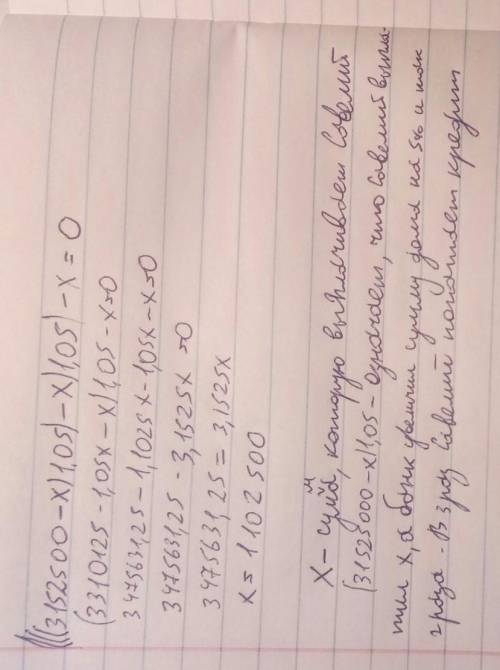 (((3152500-x)1,05)-x)1,05)-x=0
(3310125-1,05x-x)1,05-x=0
3475631,25-1,1025x-1,05x-x=0
3475631,25-3,1525x=0
3475631,25=3,1525x
x=1102500
X-сумма, которую выплачивает Савелий
(31525000-x)1,05-означает, что Савелий выпла-
тил x, а банк увеличил сумму долга на 5% и так
2 раза. В 3 раз Савелий погашает кредит